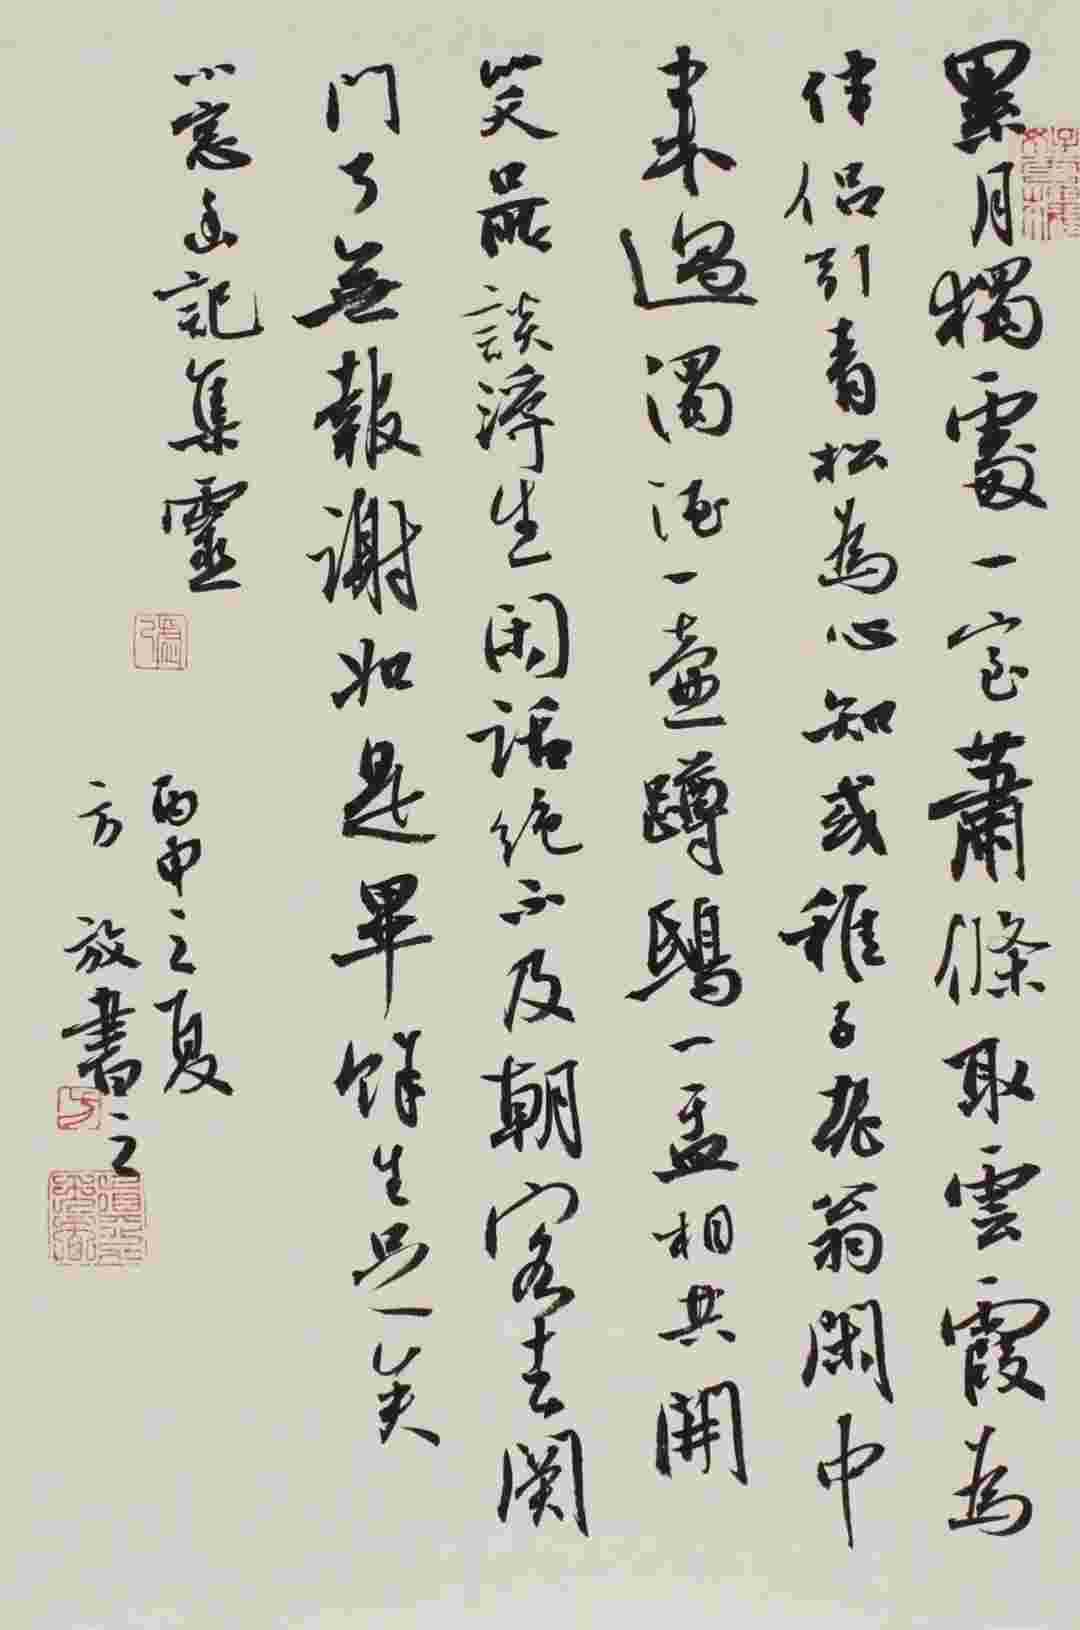 累月獨處一室蕭條取雲霞為
伴侶引青松為心知或稚子老翁閑中
来過濁酒一壺蹲鴟一盂相共開
笑口所談浮生閑話絕不及朝客去關
門了無報謝如是畢餘生足矣
小窗幽記集靈
丙申之夏
方放書之